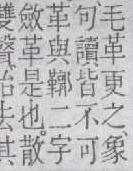 毛革更之、象
句、讀皆不可
革與鞹二字
斂革是也。散
雙去其